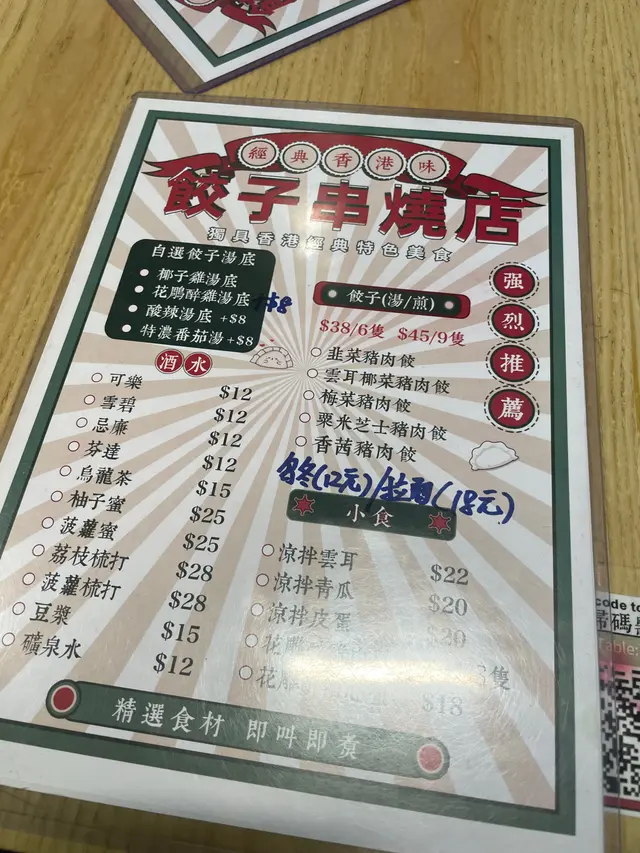 經典香港味
餃子串燒店
獨具香港經典特色美食
自選餃子湯底
椰子雞湯底
花鵰醉雞湯底 +$8
酸辣湯底 +$8
特濃番茄湯 +$8
酒水
可樂 $12
雪碧 $12
忌廉 $12
芬達 $12
烏龍茶 $15
柚子蜜 $25
菠蘿蜜 $25
荔枝梳打 $28
菠蘿梳打 $28
豆漿 $15
礦泉水 $12
强烈推薦
餃子(湯/煎)
$38/6隻 $45/9隻
韭菜豬肉餃
雲耳椰菜豬肉餃
梅菜豬肉餃
粟米芝士豬肉餃
香茜豬肉餃
(12元)/拉面(18元)
小食
涼拌雲耳 $22
涼拌青瓜 $20
涼拌皮蛋 $20
花鵰
花鵰 隻
$18
精選食材 即叫即煑
code to
掃碼
Table: